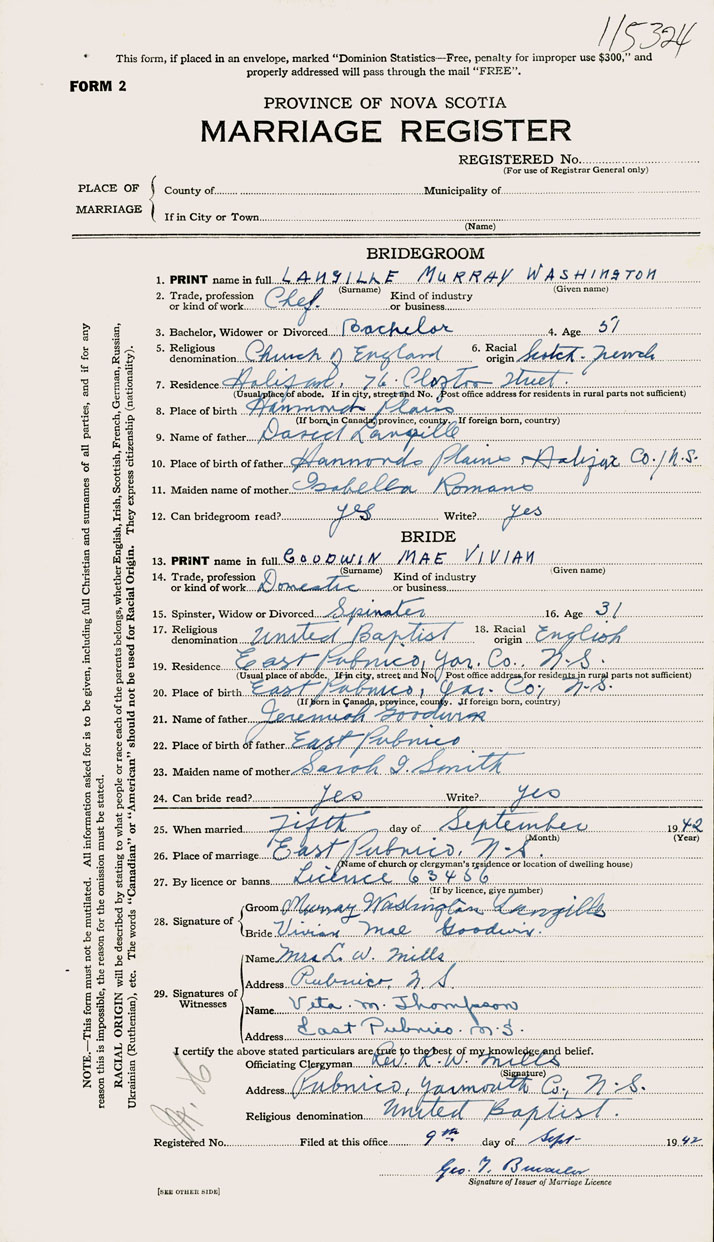 115324
This form, if placed in an envelope, marked "Dominion Statistics—Free, penalty for improper use $300," and
properly addressed will pass through the mail "FREE".
FORM 2
PROVINCE OF NOVA SCOTIA
MARRIAGE REGISTER
REGISTERED No.
(For use of Registrar General only)
PLACE OF MARRIAGE
County of
Municipality of
If in City or Town
(Name)
BRIDEGROOM
1. PRINT name in full LANGILLE MURRAY WASHINGTON
(Surname) (Given name)
2. Trade, profession or kind of work Chef. Kind of industry or business
3. Bachelor, Widower or Divorced Bachelor 4. Age 51
5. Religious denomination Church of England 6. Racial origin Scotch-French
7. Residence Halifax, 76 Street.
(Usual place of abode. If in city, street and No. Post office address for residents in rural parts not sufficient)
8. Place of birth Hammonds Plains
(If born in Canada, province, county. If foreign born, country)
9. Name of father David Langille
10. Place of birth of father Hammonds Plains Halifax Co./N.S.
11. Maiden name of mother Isabella Romans
12. Can bridegroom read? yes Write? yes
BRIDE
13. PRINT name in full GOODWIN MAE VIVIAN
(Surname) (Given name)
14. Trade, profession or kind of work Domestic Kind of industry or business
15. Spinster, Widow or Divorced Spinster 16. Age 31
17. Religious denomination United Baptist 18. Racial origin English
19. Residence East Pubnico, Yar. Co., N.S.
(Usual place of abode. If in city, street and No. Post office address for residents in rural parts not sufficient)
20. Place of birth East Pubnico, Yar. Co., N.S.
(If born in Canada, province, county. If foreign born, country)
21. Name of father Jeremiah Goodwin
22. Place of birth of father East Pubnico
23. Maiden name of mother Sarah J. Smith
24. Can bride read? Yes Write? yes
25. When married Fifth day of September 1942
(Month) (Year)
26. Place of marriage East Pubnico, N.S.
(Name of church or clergyman's residence or location of dwelling house)
27. By licence or banns Licence 63456
(If by licence, give number)
28. Signature of
Groom Murray Washington Langille
Bride Vivian Mae Goodwin.
29. Signatures of Witnesses
Name Mrs L. W. Mills
Address Pubnico, N.S.
Name Veta M. Thompson
Address East Pubnico. N.S.
I certify the above stated particulars are true to the best of my knowledge and belief.
Officiating Clergyman Rev. L. W. Mills
(Signature)
Address Pubnico, Yarmouth Co., N.S.
Religious denomination United Baptist.
Registered No. Filed at this office 9th day of Sept- 1942
Geo. T.
Signature of Issuer of Marriage Licence
[SEE OTHER SIDE]
NOTE.—This form must not be mutilated. All information asked for is to be given, including full Christian and surnames of all parties, and if for any
reason this is impossible, the reason for the omission must be stated.
RACIAL ORIGIN will be described by stating to what people or race each of the parents belongs, whether English, Irish, Scottish, French, German, Russian,
Ukrainian (Ruthenian), etc. The words "Canadian" or "American" should not be used for Racial Origin. They express citizenship (nationality).